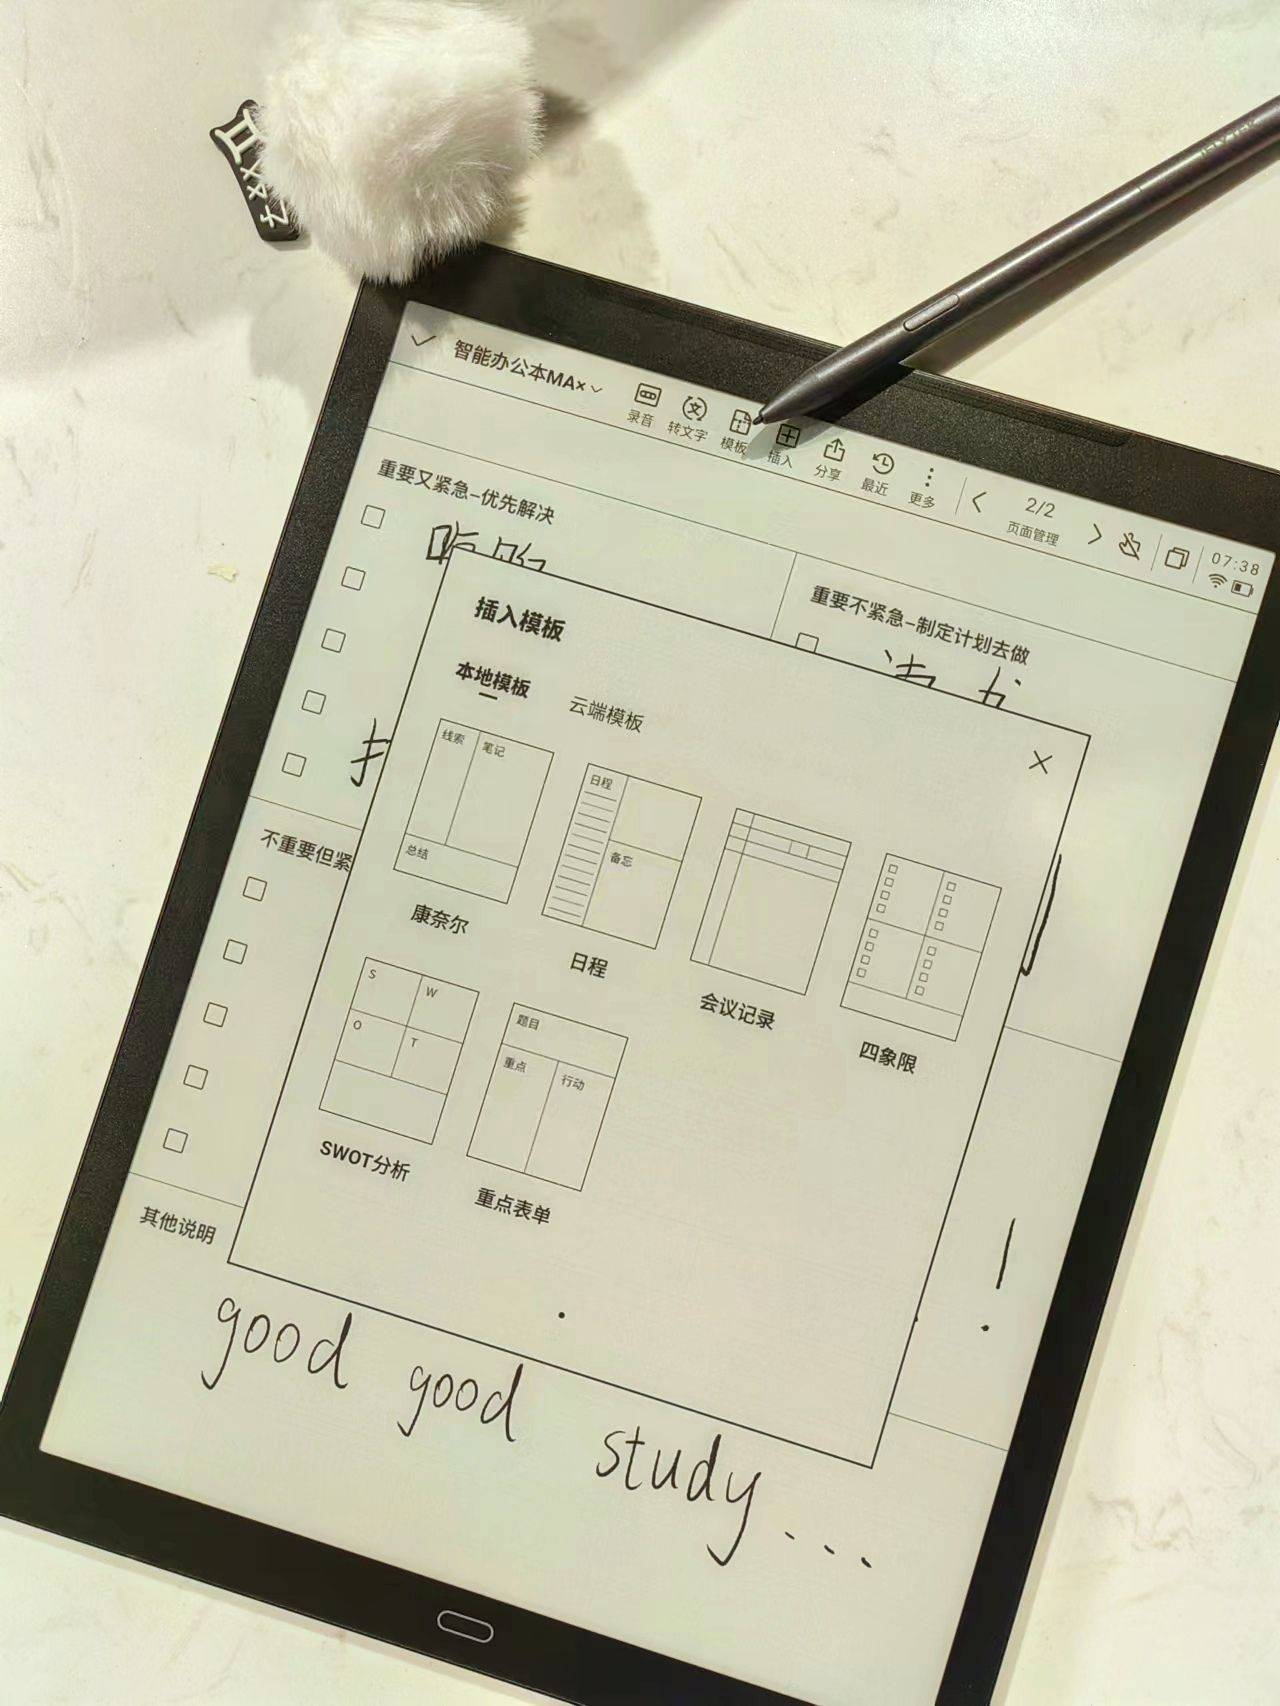 智能办公本MAX
录音 转文字 模板 插入 分享 最近 更多
2/2
页面管理
07:38
重要又紧急-优先解决
重要不紧急-制定计划去做
插入模板
本地模板 云端模板
线索 笔记
总结
康奈尔
日程
备忘
日程
会议记录
四象限
S W
O T
SWOT分析
题目
重点 行动
重点表单
不重要但紧
其他说明
good good study...